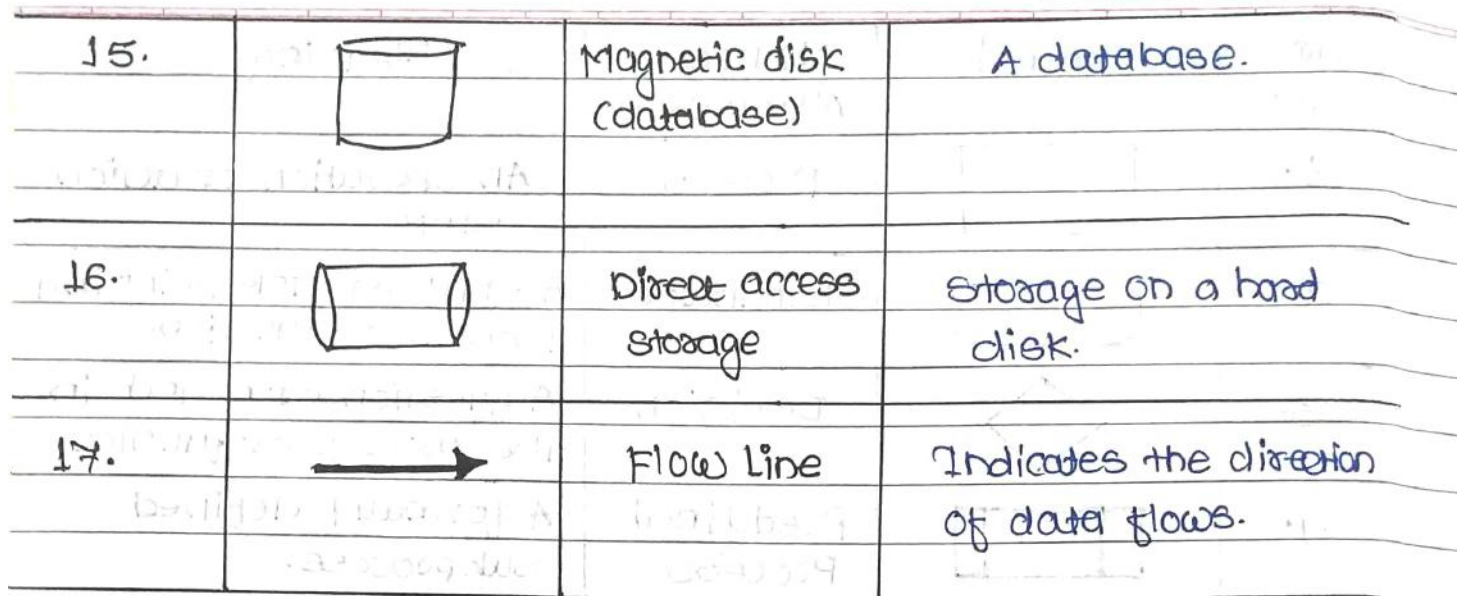 15.
Magnetic disk
(database)
A database.
16.
Direct access
storage
Storage on a hard
disk.
17.
Flow Line
Indicates the direction
of data flows.